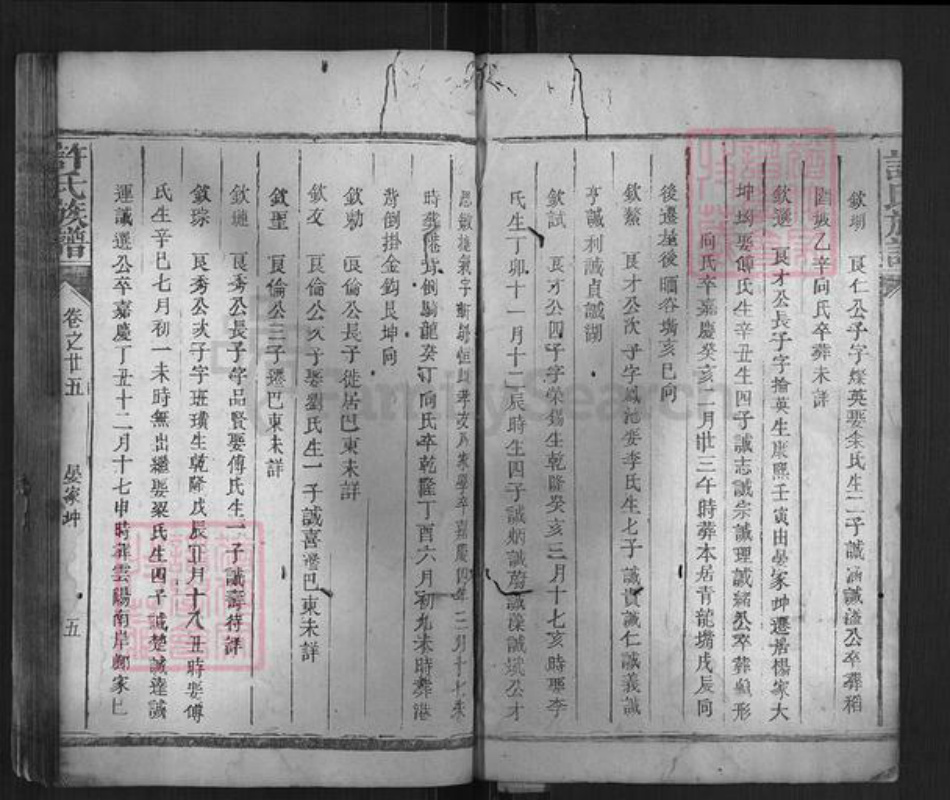 欽瑚 良仁公子字燦英娶余氏生二子誠涵誠溢公卒葬稻
乙辛向氏卒葬未詳
欽選 良才公長子字掄英生康熙壬寅由晏家坤遷居楊家大
坤 娶傅氏生辛丑生四子誠志誠宗誠理誠緒公卒葬 形
向氏卒嘉慶癸亥二月廿三午時葬本居青龍嘴戌辰向
後遷塟後 谷塆亥巳向
欽 良才公次子字鳳池娶李氏生七子誠貴誠仁誠義誠
亨誠利誠貞誠湖
欽試 良才公四子字榮錫生乾隆癸亥三月十七亥時娶李
氏生丁卯十一月十二辰時生四子誠炳誠蔚誠 誠斌公才
思敏捷 卒嘉慶四年二月十七未
時葬港背倒騎龍癸丁向氏卒乾隆丁酉六月初九未時葬港
背倒掛金鈎艮坤向
欽勑 良倫公長子徙居巴東未詳
欽文 良倫公次子娶劉氏生一子誠喜遷巴東未詳
欽聖 良倫公三子遷巴東未詳
欽璉 良秀公長子字品賢娶傅氏生一子誠壽待詳
欽琮 良秀公次子字班璜生乾隆戊辰正月十八丑時娶傅
氏生辛巳七月初一未時無出繼娶梁氏生四子誠楚誠達誠
運誠選公卒嘉慶丁丑十二月十七申時葬雲陽南岸鄭家巳
許氏族譜
卷之廿五
晏家坤
五